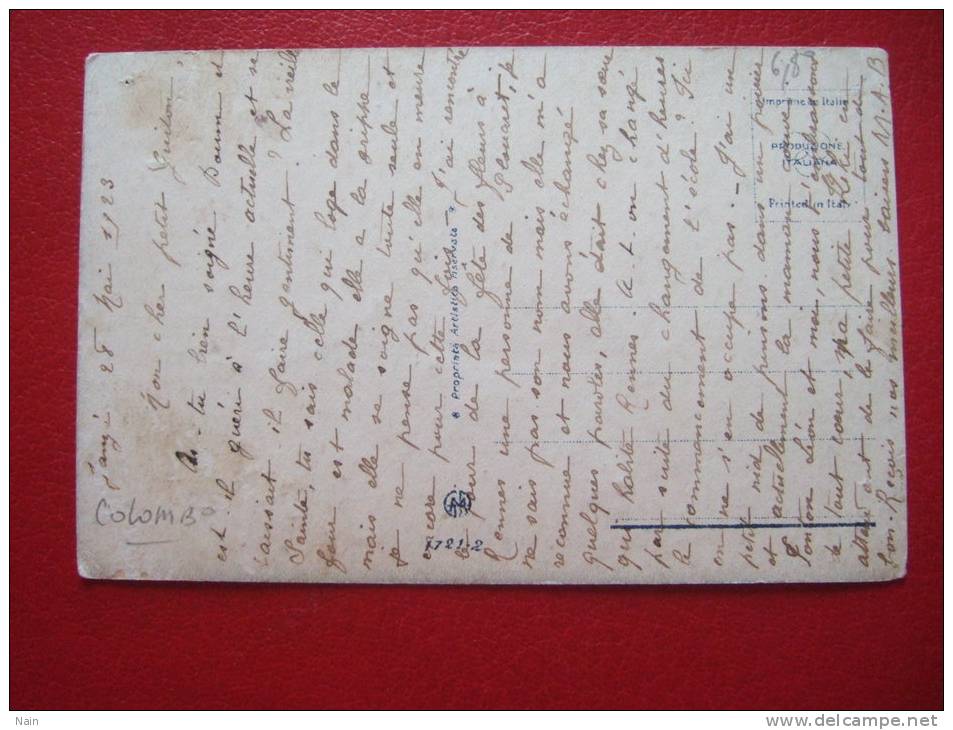 28 Mai 1923
Mon cher petit
As-tu bien soigné Poum et
est-il guéri à l'heure actuelle et se
laissait il faire gentiment ? La vieille
Sainte, tu sais celle qui loge dans le
four, est malade elle a la grippe
mais elle se soigne toute seule et
je ne pense pas qu'elle en meure
encore pour cette fois. J'ai rencontré
le jour de la fête des fleurs à
Rennes une personne de je
ne sais pas son nom mais elle m'a
reconnue et nous avons échangé
quelques paroles, elle était chez sa sœur
qui habite Rennes. A-t-on changé
par suite du changement d'heures
le commencement de l'école ? Ici
on ne s'en occupe pas. J'ai un
petit nid de pinsons dans un
et actuellement la maman couve.
Tonton Léon et moi, nous t'embrassons
de tout cœur, ta petite en
attendant de le faire pour tout de
bon. Reçois nos meilleurs baisers M.A.B
COLOMBO
6,80
Imprimé en Italie
PRODUZIONE
ITALIANA
Printed in Italy
Proprietà Artistica riservata
1721-2
Nain
www.delcampe.net